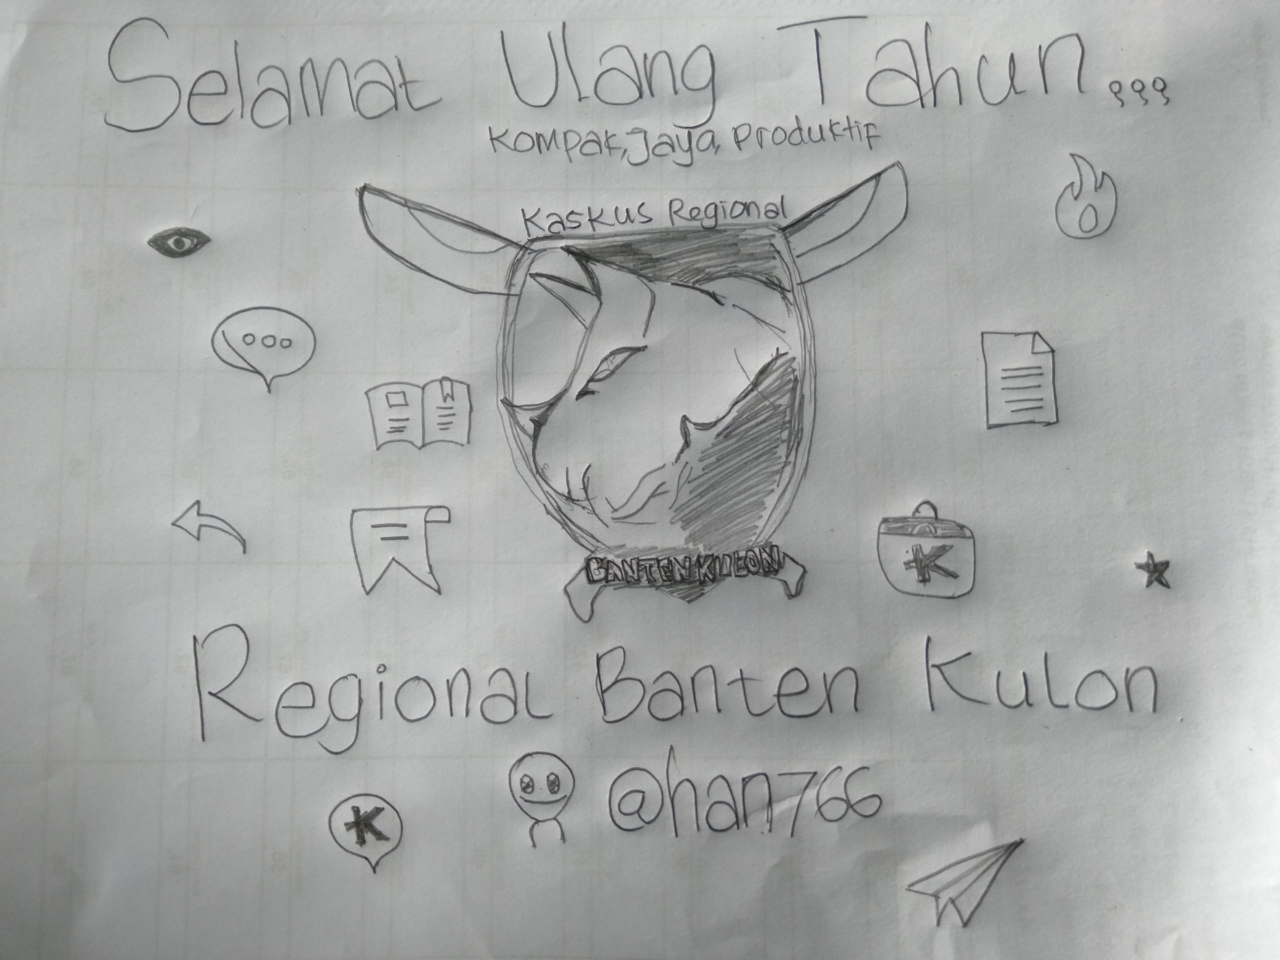 Selamat Ulang Tahun...
Kompak, Jaya, Produktif
Kaskus Regional
BANTEN KULON
K
Regional Banten Kulon
K
@han766